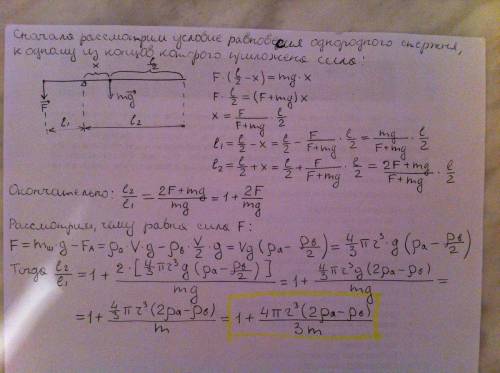 Сначала рассмотрим условие равновесия однородного стержня,
к одному из концов которого приложена сила:
x l/2
F⃗ mg⃗
l₁ l₂
F·(l/2 − x) = mg·x
F·l/2 = (F+mg)x
x = F/(F+mg)·l/2
l₁ = l/2 − x = l/2 − F/(F+mg)·l/2 = mg/(F+mg)·l/2
l₂ = l/2 + x = l/2 + F/(F+mg)·l/2 = (2F+mg)/(F+mg)·l/2
Окончательно: l₂/l₁ = (2F+mg)/mg = 1 + 2F/mg
Рассмотрим, чему равна сила F:
F = mш·g − FА = ρа·V·g − ρв·V/2·g = Vg(ρа − ρв/2) = 4/3 πr³·g(ρа − ρв/2)
Тогда l₂/l₁ = 1 + 2·[4/3 πr³·g(ρа − ρв/2)]/mg = 1 + 4/3 πr³g(2ρа − ρв)/mg =
= 1 + 4/3 πr³(2ρа − ρв)/m = 1 + 4πr³(2ρа − ρв)/3m